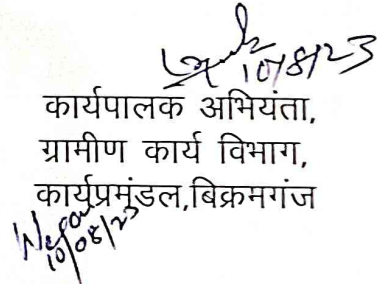 10/8/23
कार्यपालक अभियंता,
ग्रामीण कार्य विभाग,
कार्यप्रमंडल,बिक्रमगंज
10/08/23